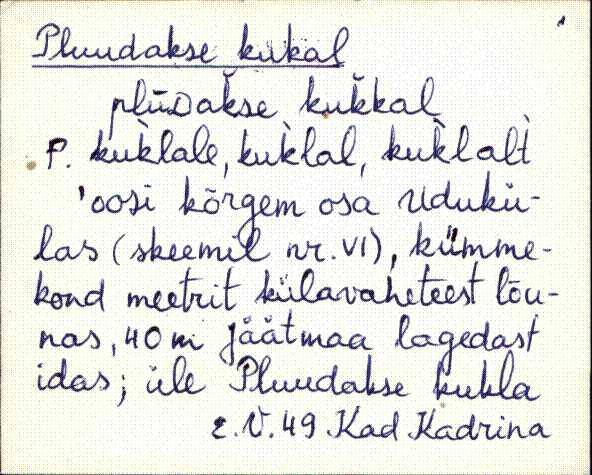 Pluudakse kukal
plūᴅakse kuk̀kal
P. kuk̀lale, kuk̀lal, kuk̀lalt
'oosi kõrgem osa Udukü-
las (skeemil nr. VI), kümme-
kond meetrit külavaheteest lõu-
nas, 40 m jäätmaa lagedast
idas; üle Pluudakse kukla
E.V. 49 Kad Kadrina